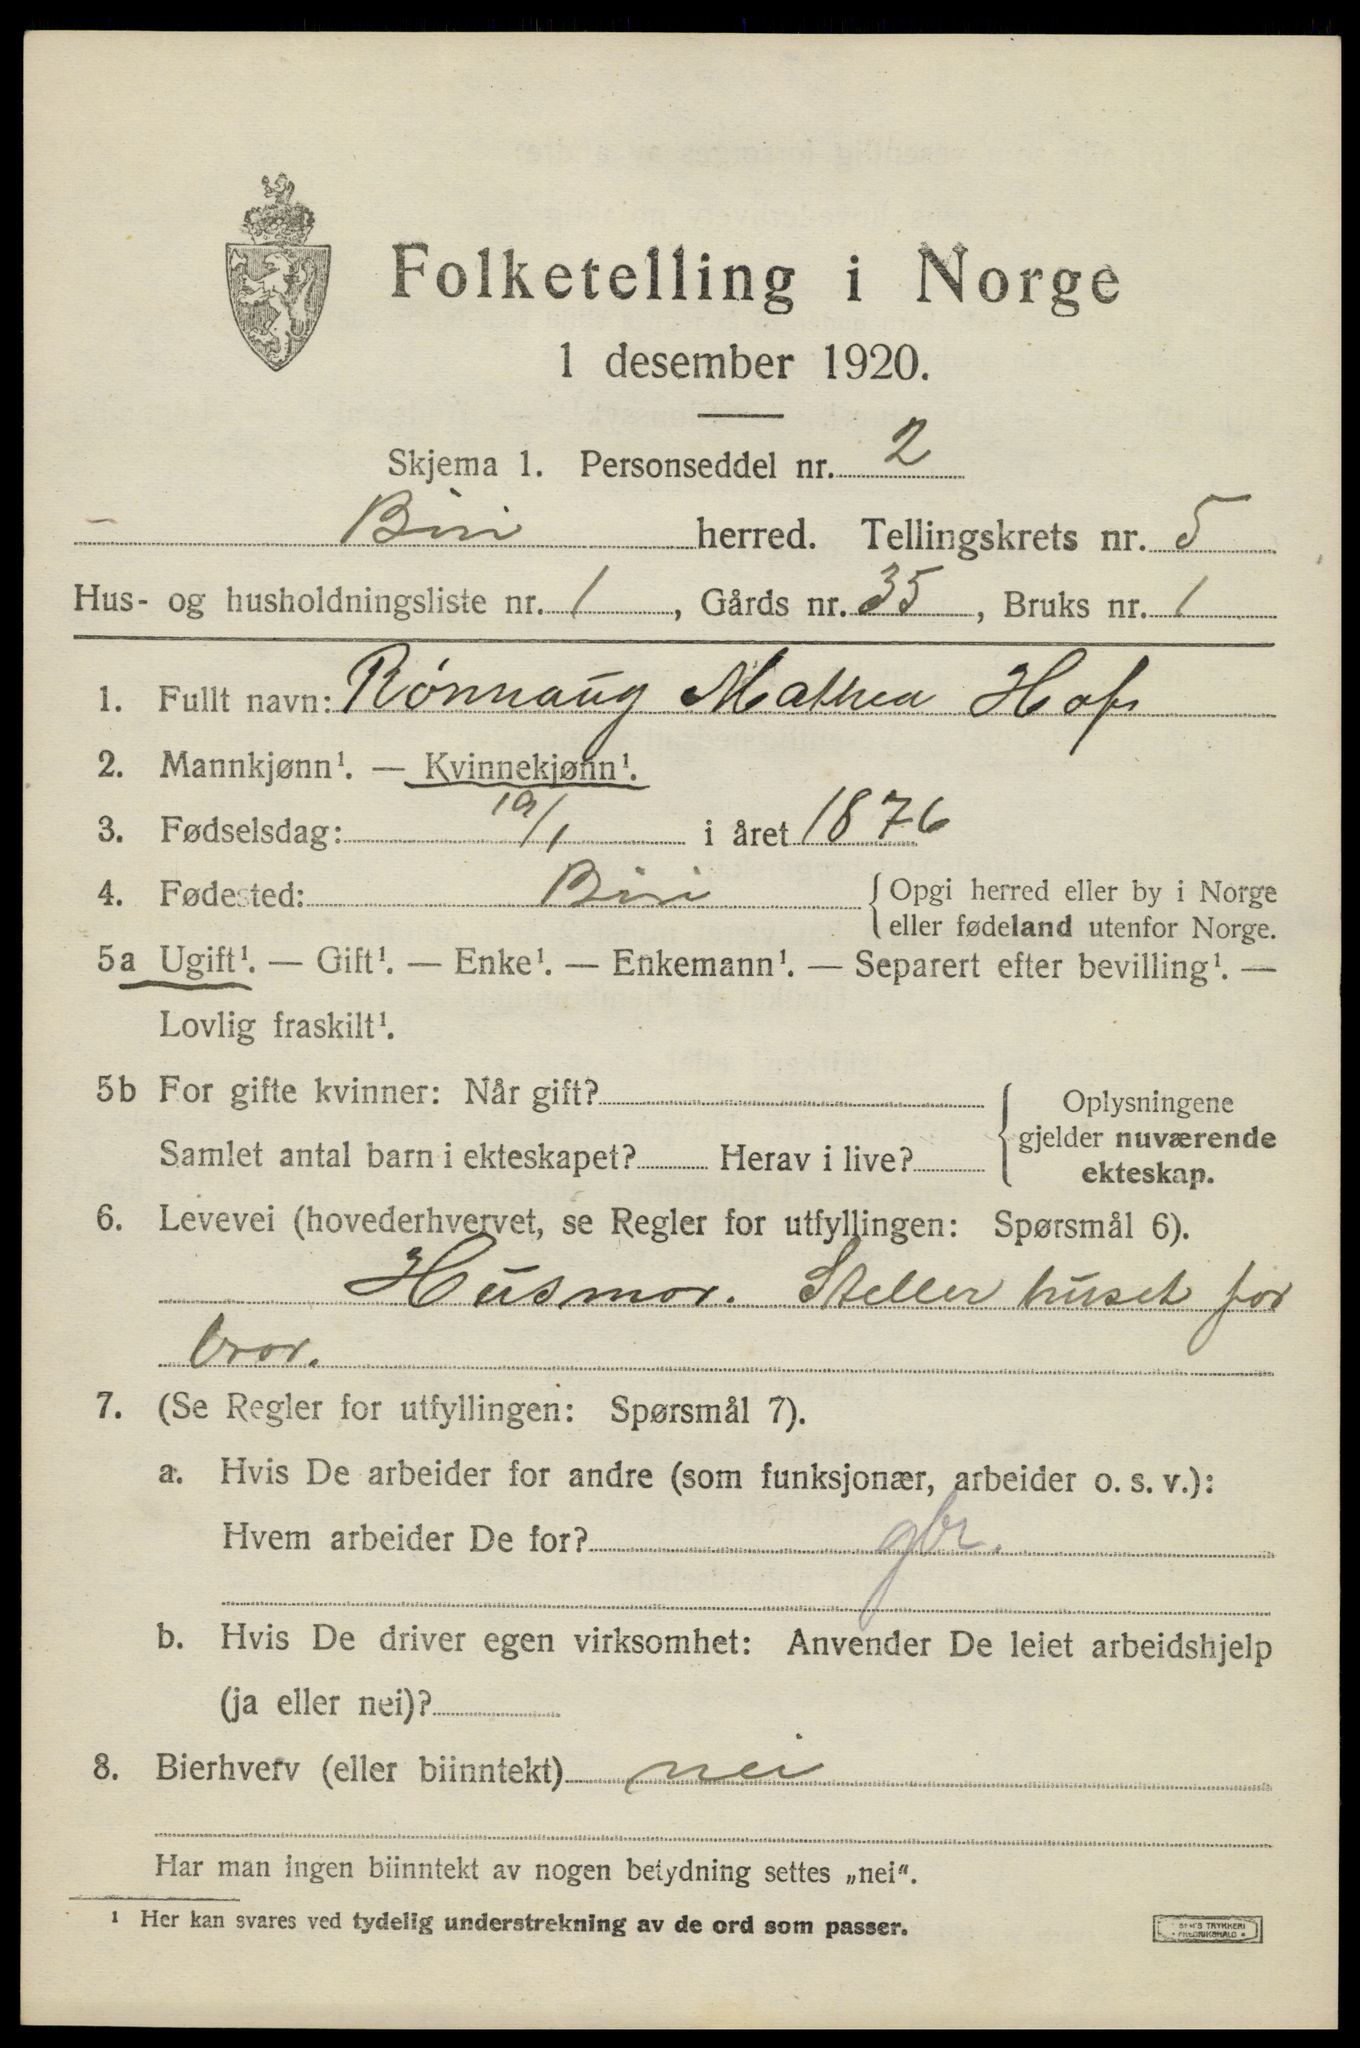 Folketelling i Norge
1 desember 1920.
Skjema 1. Personseddel nr. 2
Biri herred. Tellingskrets nr. 5
Hus- og husholdningsliste nr. 1, Gårds nr. 35, Bruks nr. 1
1. Fullt navn: Rønnaug Mathea Hofs
2. Mannkjønn¹. — Kvinnekjønn¹.
3. Fødselsdag: 19/1 i året 1876
4. Fødested: Biri {Opgi herred eller by i Norge
eller fødeland utenfor Norge.
5a Ugift¹. — Gift¹. — Enke¹. — Enkemann¹. — Separert efter bevilling¹. —
Lovlig fraskilt¹.
5b For gifte kvinner: Når gift? Oplysningene
gjelder nuværende
Samlet antal barn i ekteskapet? Herav i live?
ekteskap.
6. Levevei (hovederhvervet, se Regler for utfyllingen: Spørsmål 6).
Husmor. Steller huset for
bror.
7. (Se Regler for utfyllingen: Spørsmål 7).
a. Hvis De arbeider for andre (som funksjonær, arbeider o. s. v.):
Hvem arbeider De for? gbr.
b. Hvis De driver egen virksomhet: Anvender De leiet arbeidshjelp
(ja eller nei)?
8. Bierhverv (eller biinntekt) nei
Har man ingen biinntekt av nogen betydning settes „nei“.
¹ Her kan svares ved tydelig understrekning av de ord som passer.
TRYKKERI
FREDRIKSHALD